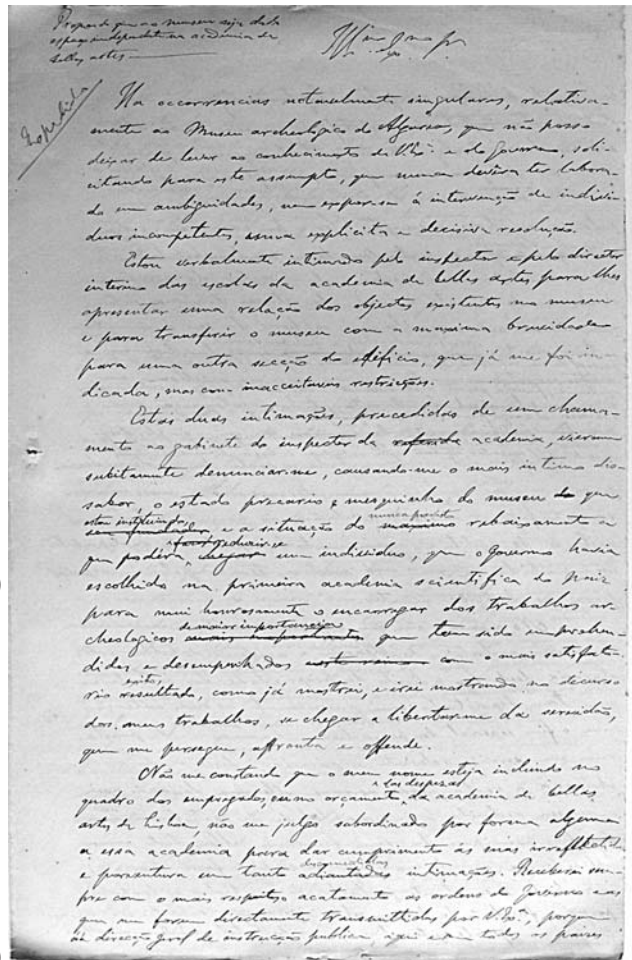 Propondo que ao museu seja dado
espaço independente na academia de
bellas artes
Illmo Exmo Sr.
Expedido
Ha occorrencias notavelmente singulares, relativa-
mente ao Museu archeologico do Algarve, que não posso
deixar de levar ao conhecimento de V. Exa. e do Governo, soli-
citando para este assumpto, que nunca devêra ter labora-
do em ambiguidades, nem expor-se á intervenção de indivi-
duos incompetentes, uma explicita e decisiva resolução.
Estou verbalmente intimado pelo inspector e pelo director
interino das escolas da academia de bellas artes para lhes
apresentar uma relação dos objectos existentes no museu
e para transferir o museu com a maxima brevidade
para uma outra secção do edificio, que já me foi in-
dicada, mas com inacceitaveis restricções.
Estas duas intimações, precedidas de um chama-
mento ao gabinete do inspector da referida academia, vieram
subitamente denunciar-me, causando-me o mais intimo dis-
sabor, o estado precario e mesquinho do museu de que
estou instituindo
e a situação do maximo rebaixamento a
que podéra chegar um individuo, que o Governo havia
escolhido na primeira academia scientifica do paiz
para mui honrosamente o encarregar dos trabalhos ar-
cheologicos de maior importancia que tem sido emprehen-
didos e desempenhados com o mais satisfato-
rio resultado, como já mostrei, e irei mostrando no decurso
exito
dos meus trabalhos, se chegar a libertar-me da servidão,
que me persegue, affronta e offende.
Não me constando que o meu nome esteja incluido no
quadro dos empregados, ou no orçamento das despezas da academia de bellas
artes de Lisboa, não me julgo subordinado por forma alguma
a essa academia para dar cumprimento ás suas irreflectidas
e porventura um tanto adiantadas intimações. Receberei sem-
pre com o mais respeitoso acatamento as ordens do Governo e as
que me forem directamente transmittidas por V. Exa., porque
á direcção geral de instrucção publica, aqui e em todos os paizes